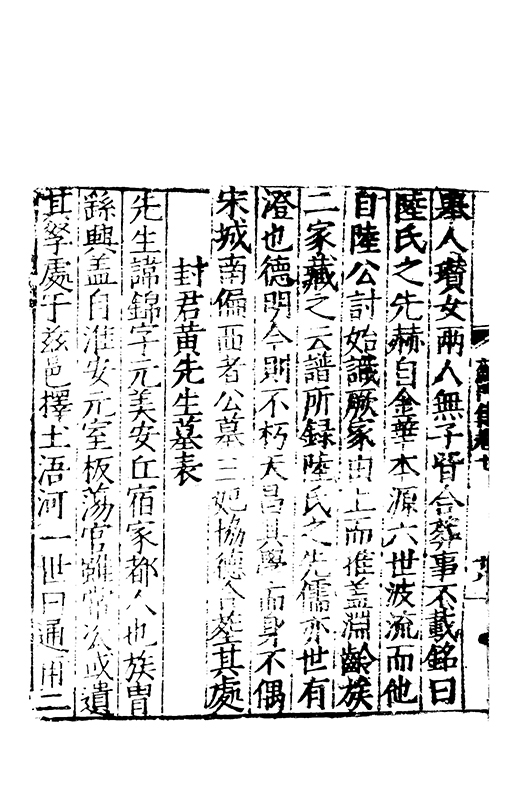 舉人瓚女兩人無子皆合葬事不載銘曰
陸氏之先赫自金華本源六世波流而他
自陸公討始識厥家由上而推蓋淵齡族
二家藏之云譜所錄陸氏之先儒亦世有
澄也德明今則不朽大昌其學而身不偶
宋城南偏西者公墓三妃協德合塟其處
封君黃先生墓表
先生諱錦字元美安丘宿家都人也族冑
緜興盖自淮安元室板蕩官雖常次或遺
其孥處于兹邑擇土浯河一世曰通甫二